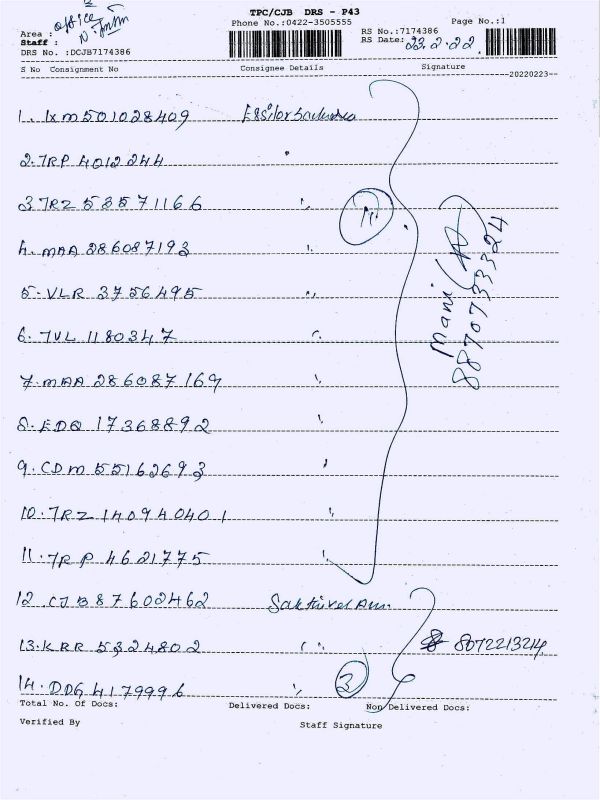 TPC/CJB DRS - P43
Phone No.:0422-3505555
Page No.:1
Area : office
Staff :
DRS No. :DCJB7174386
RS No.:7174386
RS Date: 23.2.22.
S No Consignment No Consignee Details Signature
20220223
1. IXM501028409
2. TRP 4012244 "
3 TRZ 53571166 "
4. MAA 286087193 "
5. VLR 3756495 "
6. TVL 1180347 "
7. MAA 286087169 "
8. EDQ 17368892 "
9. CDM 55162693 "
10. TRZ 140940401 "
11. TRP 4621775 "
11
Mani
8870733324
12. CJB87602462 Sakthivel
13. KRR 5324802 " 8072213214
14. DDG 4179996 " 3
Total No. Of Docs: Delivered Docs: Non Delivered Docs:
Verified By Staff Signature